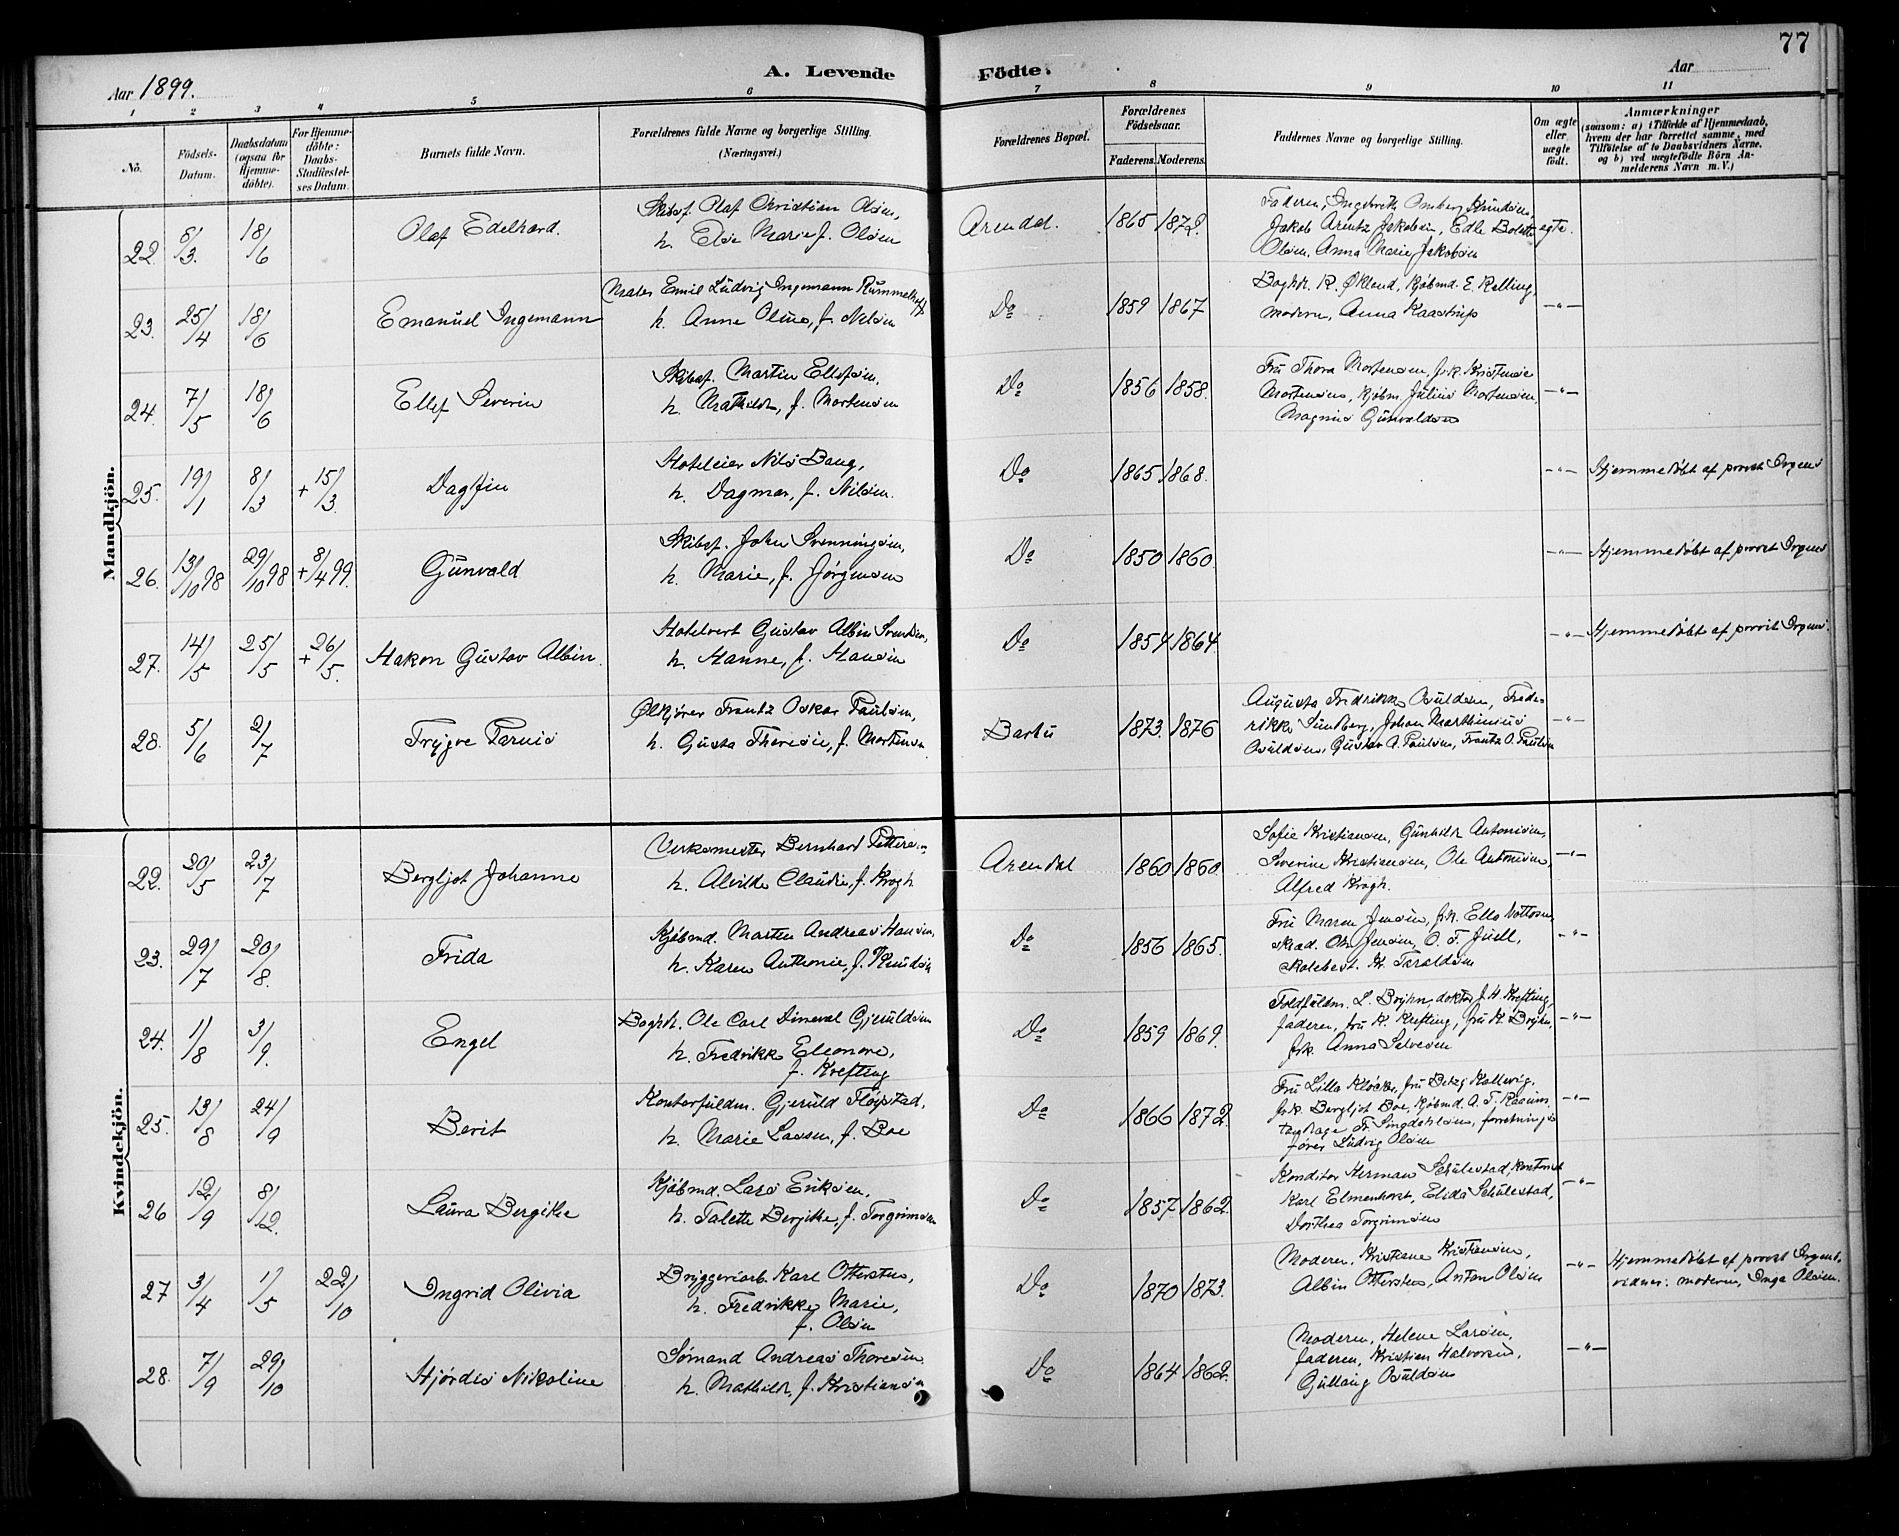 77
Aar 1899.
A. Levende Födte.
Aar
1 2 3 4 5 6 7 8 9 10 11
No.
Födsels-Datum.
Daabsdatum (ogsaa for Hjemmedöbte).
For Hjemmedöbte: Daabs-Stadfæstelses Datum.
Barnets fulde Navn.
Forældrenes fulde Navne og borgerlige Stilling. (Næringsvei.)
Forældrenes Bopæl.
Forældrenes Födselsaar.
Faderens. Moderens.
Faddernes Navne og borgerlige Stilling.
Om ægte eller uægte födt.
Anmærkninger
(saasom: a) i Tilfælde af Hjemmedaab,
hvem der har forrettet samme, med
Tilföielse af to Daabsvidners Navne,
og b) ved uægtefödte Börn An-
melderens Navn m. V.)
Mandkjön.
22. 8/3. 18/6 Olaf Edelhard. Skibsf. Olaf Christian Olsen,
h. Else Marie f. Olsen
Arendal. 1865 1872.
Faderen, Ingebreth Omberg Knudsen,
Jakob Arentz Jakobsen, Edle Bolette
Olsen, Anna Marie Jakobsen
egte.
23. 25/4 18/6 Emanuel Ingemann Maler Emil Ludvig Ingemann Rummelhoff
h. Anne Oline, f. Nilsen
Do 1859 1867
Boghdl. R. Økland, Kjøbmd. E. Relling,
moderen, Anna Kaastrup
-"-
24. 7/5 18/6 Ellef Severin Skibsf. Martin Ellefsen,
h. Mathilde, f. Mortensen
Do 1856 1858.
Fru Thora Mortensen, frk. Kristense
Mortensen, Kjøbm. Julius Mortensen,
Magnus Gunvaldsen
-"-
25. 19/1 8/3 + 15/3. Dagfin Hoteleier Nils Baug,
h. Dagmar, f. Nilsen.
Do 1865 1868.
-"- Hjemmedøbt af provst Irgens
26. 13/10 98 29/10 98 + 8/4 99. Gunvald Skibsf. John Svenningsen,
h. Marie, f. Jørgensen
Do 1850 1860.
-"- Hjemmedøbt af provst Irgens
27. 14/5 25/5 + 26/5. Hakon Gustav Albin. Hotelvert Gustav Albin Svendsen,
h. Hanne, f. Hansen
Do 1854 1864
-"- Hjemmedøbt af provst Irgens.
28. 5/6 2/7 Trygve Parnis Ølkjører Frantz Oskar Paulsen,
h. Gusta Theresie, f. Mortensen
Barbu 1873. 1876
Augusta Fredrikke Osuldsen, Frede-
rikke Sundberg, Johan Marthinius
Osuldsen, Gustav A. Paulsen, Frantz O. Paulsen
-"-
Kvindekjön.
22. 20/5 23/7 Bergljot Johanne Verksmester Bernhard Pettersen,
h. Alvilde Claudie, f. Krogh
Arendal 1860 1860.
Sofie Kristiansen, Gunhild Antonisen,
Severine Kristiansen, Ole Antonisen,
Alfred Krogh.
-"-
23. 29/7 20/8. Frida Kjøbmd. Morten Andreas Hansen,
h. Karen Anthonie, f. Knudsen
Do 1856 1865.
Fru Maren Jensen, frk. Ella
Jensen, O. T. Juell,
skolebest. K. Taraldsen
-"-
24. 1/8 3/9. Engel Boghdl. Ole Carl Gjeruldsen
h. Fredrikke Eleonore,
f. Krefting
Do 1859 1869.
Toldfuldm. L. Brijhn, doktor J. H. Krefting,
faderen, fru K. Krefting, fru K. Brijhn,
frk. Anna Selvesen
-"-
25. 13/8 24/9 Berit Kontorfuldm. Gjeruld Fløystad,
h. Marie Lassen, f. Boe
Do 1866 1872.
Fru Lilla Kløcker, fru Betzy Kallevig,
frk. Bergljot Boe, Kjøbmd. A. T. Raaum,
tandlæge Fr. Singdahlsen, forretnings
fører Ludvig Olsen
-"-
26 12/9 8/12. Laura Bergitte Kjøbmd. Lars Eriksen,
h. Talette Bergitte, f. Torgrimsen
Do 1857 1862.
Konditor Herman Schulestad, kontorist
Karl Elmenhorst, Elida Schulestad,
Dorthea Torgrimsen
-"-
27 3/4 1/5 22/10 Ingrid Olivia Bryggeriarb. Karl Ottersten,
h. Fredrikke Marie,
f. Olsen
Do 1870 1873.
Moderen, Kristiane Kristiansen,
Albin Ottersten, Anton Olsen
-"- Hjemmedøbt af provst Irgens.
vidner: moderen, Inga Olsen.
28. 7/9 29/10 Hjørdis Nikoline Sømand Andreas Thoresen
h. Mathilde, f. Kristiansen
Do 1864 1862.
Moderen, Helene Larsen,
faderen, Kristian Halvorsen,
Gullaug Osuldsen
-"-